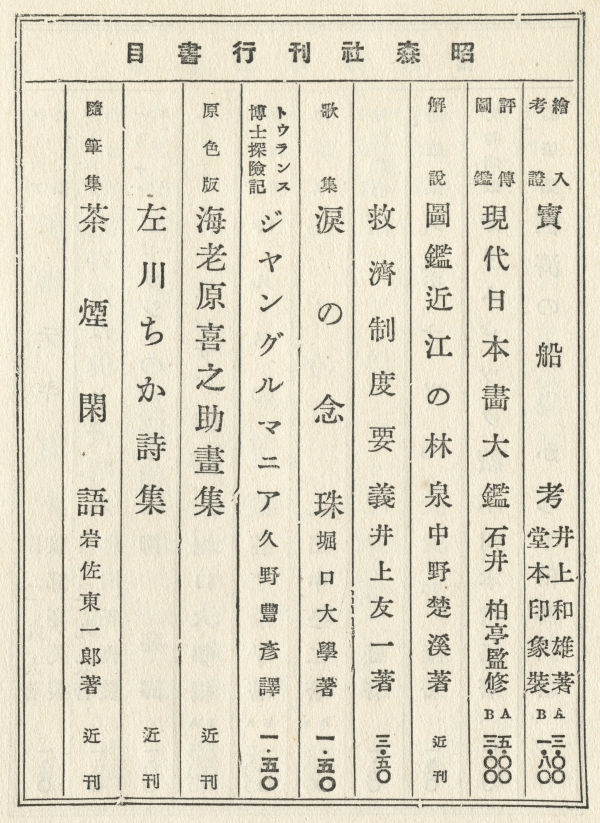 昭森社刊行書目
繪入考證 寶船考 井上和雄著 堂本印象裝 A 三・〇〇 B 一・八〇
評傳圖鑑 現代日本畵大鑑 石井柏亭監修 A 五・〇〇 B 三・〇〇
解說 圖鑑近江の林泉 中野楚溪著 近刊
救濟制度要義 井上友一著 三・五〇
歌集 淚の念珠 堀口大學著 一・五〇
トウランス博士探險記 ジヤングルマニア 久野豐彥譯 一・五〇
原色版 海老原喜之助畫集 近刊
左川ちか詩集 近刊
隨筆集 茶煙閑語 岩佐東一郎著 近刊